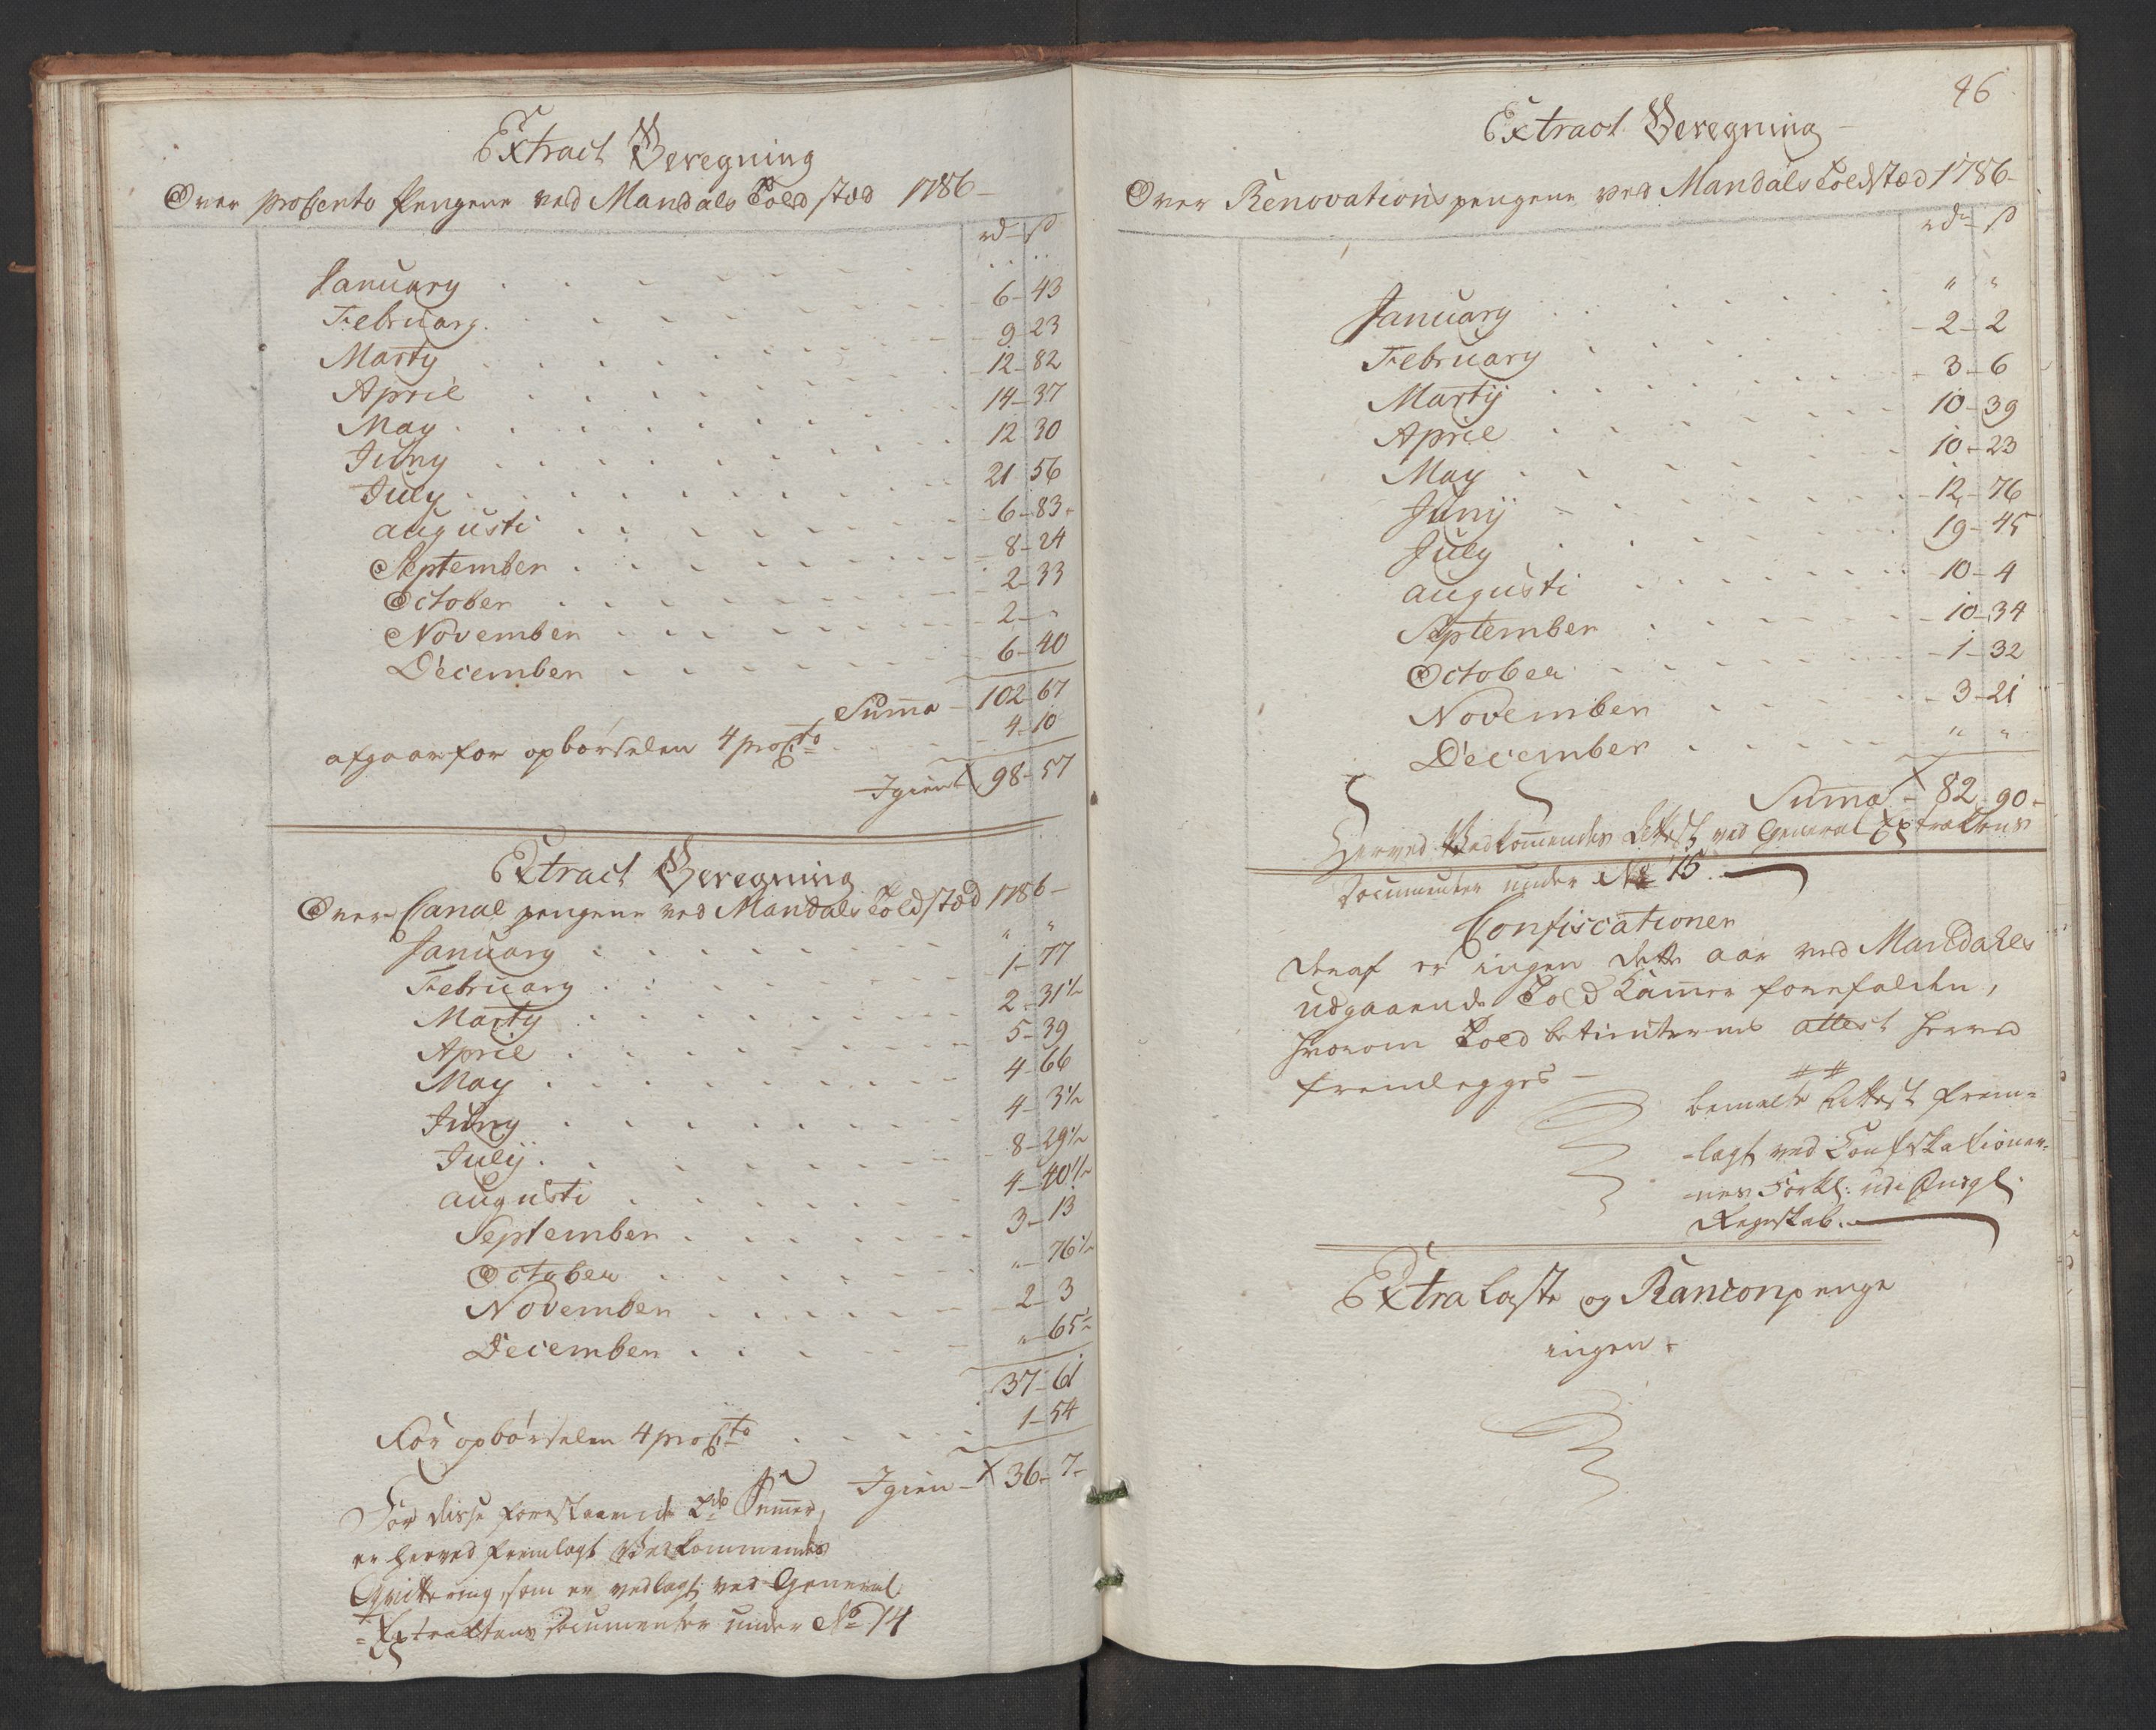 Extract Beregning
Over procento Pengene ved Mandals Told stæd 1786 –
rd – ß
January . . . " "
February . . . 6 – 43
Marty . . . 9 – 23
April . . . 12 – 82
May . . . 14 – 37
Juny . . . 12 30
July . . . 21 56
augusti . . . 6 – 83
September . . . 8 – 24
October . . . 2 – 33
November . . . 2 – "
December . . . 6 – 40
Suma – 102 – 67
afgaar for opbørselen 4 proCto . . . 4 – 10
Igien 98 – 57
Extract Beregning
Over Canal pengene ved Mandals Toldstæd 1786 –
January . . . " "
February . . . 1 – 77
Marty . . . 2 – 31½
April . . . 5 – 39
May . . . 4 – 66
Juny . . . 4 – 3½
Julij . . . 8 – 29½
augusti . . . 4 – 40½
September . . . 3 – 13
October . . . " – 76½
November . . . 2 – 3
December . . . " – 65½
37 – 61
For opbørselen 4 proCto . . . 1 – 54
Igien – X 36 – 7 –
For disse forestaaende 2de Sumer,
er herved fremlagt Vedkommendes
Qvittering, som er vedlagt ved General
= Extractens Documenter under No 14
46
Extract Beregning –
Over Renovations pengene ved Mandals Toldstæd 1786 –
rdr – ß
January . . . " "
February . . . 2 – 2
Martij . . . 3 – 6
April . . . 10 – 39
May . . . 10 – 23
Junij . . . 12 – 76
July . . . 19 – 45
augusti . . . 10 – 4
September . . . 10 – 34
October . . . 1 – 32
November . . . 3 – 21
December . . . " "
Suma – X 82 – 90 –
Herved Vedkommendes Attest ved General Extractens
Documenter under No 15.
Confiscationer
Deraf er ingen dette aar ved Mandahls
udgaaende Told Kamer forefalden,
hvorom Told betienternes attest herved
fremlegges –
##
bemelte Attest frem=
=lagt ved Confiskationer=
=nes Forkl: udi Indgl.
Regnskab.
Extra Laste og Ranconpenge
ingen